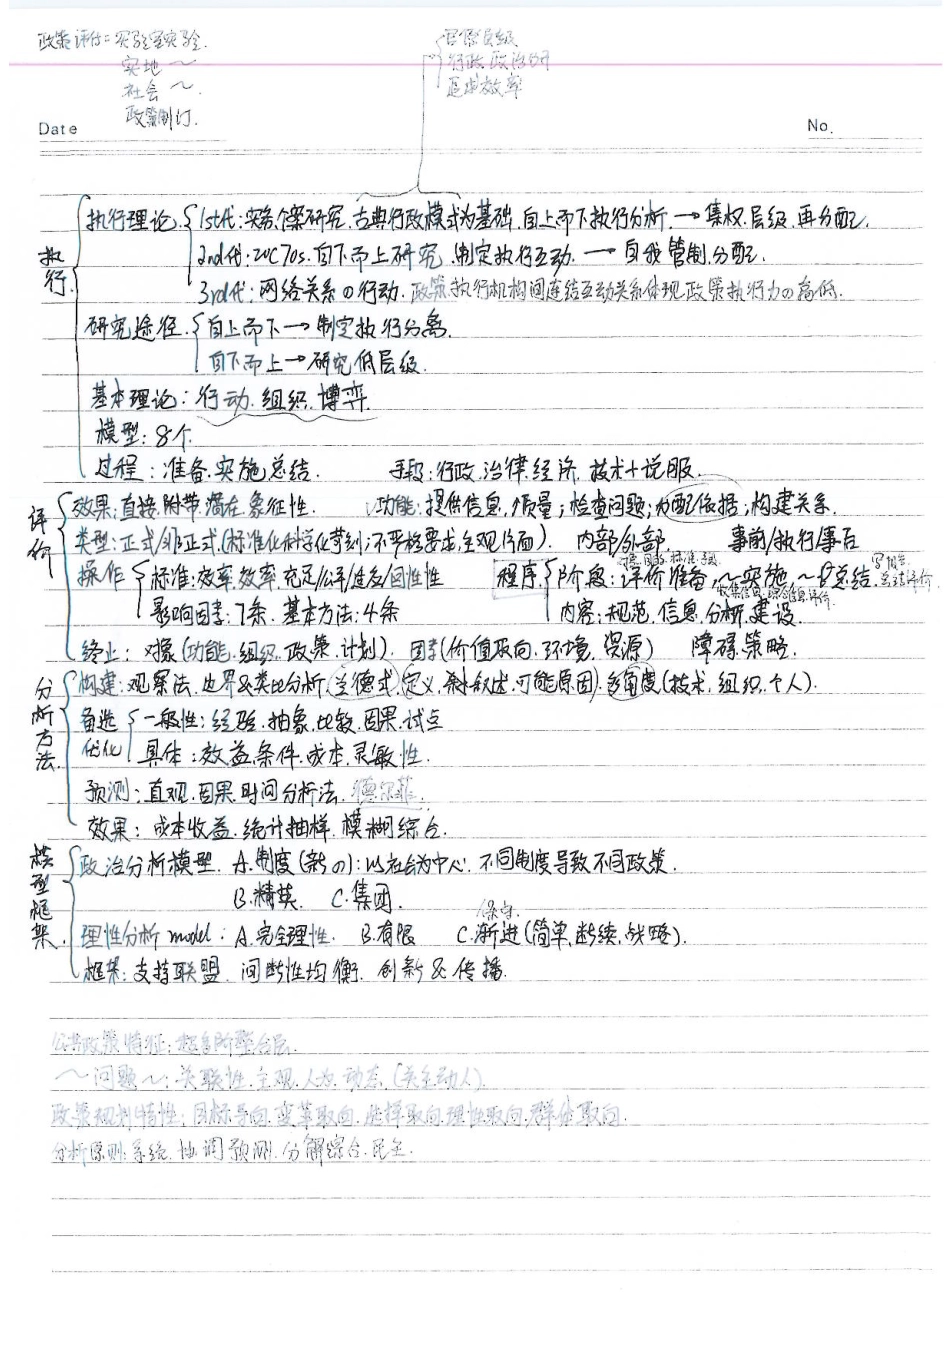 政策评估:实验室实验.
实地～
社会～.
政策制订.
官僚层级
行政政治分开
追求效率
Date
No.
执行
执行理论 1st代:实务个案研究.古典行政模式为基础.自上而下执行分析→集权.层级.再分配.
2nd代:20C70s.自下而上研究.制定执行互动.→自我管制.分配.
3rd代:网络关系の行动.政策执行机构间连结互动关系体现政策执行力の高低.
研究途径.自上而下→制定执行分离.
自下而上→研究低层级.
基本理论:行动.组织.博弈.
模型:8个
过程:准备.实施.总结. 手段:行政.法律.经济.技术+说服.
评价
效果:直接.附带.潜在.象征性. 功能:提供信息.质量;检查问题;为配依据;构建关系.
类型:正式/非正式.(标准化科学化;不严格要求,主观片面). 内部/外部. 事前/执行/事后
操作 标准:效率.效率.充足/公平/适应/回应性 程序 阶段:评价准备～实施～总结.
影响因素:7条.基本方法:4条 内容:规范.信息.分析.建设.
终止:对象(功能.组织.政策.计划). 因素(价值取向.环境.资源) 障碍.策略.
分析方法.
构建:观察法.边界&类比分析.兰德式(定义.叙述.可能原因).多角度(技术.组织.个人).
备选优化 一般性:经验.抽象.比较.因果.试点
具体:效益.条件.成本.灵敏性.
预测:直观.因果.时间分析法.德尔菲.
效果:成本收益.统计抽样.模糊综合.
模型框架.
政治分析模型.A.制度(新の):以社会为中心.不同制度导致不同政策.
B.精英. C.集团.
/保守.
理性分析model:A.完全理性. B.有限 C.渐进(简单.断续.战略).
框架:支持联盟.间断性均衡.创新&传播.
公共政策特征:整合层.
～问题～:关联性.主观.人为.动态.(关主动人).
政策规划特性:目标导向.变革取向.选择取向.理性取向.群体取向.
分析原则:系统.协调.预测.分解综合.民主.